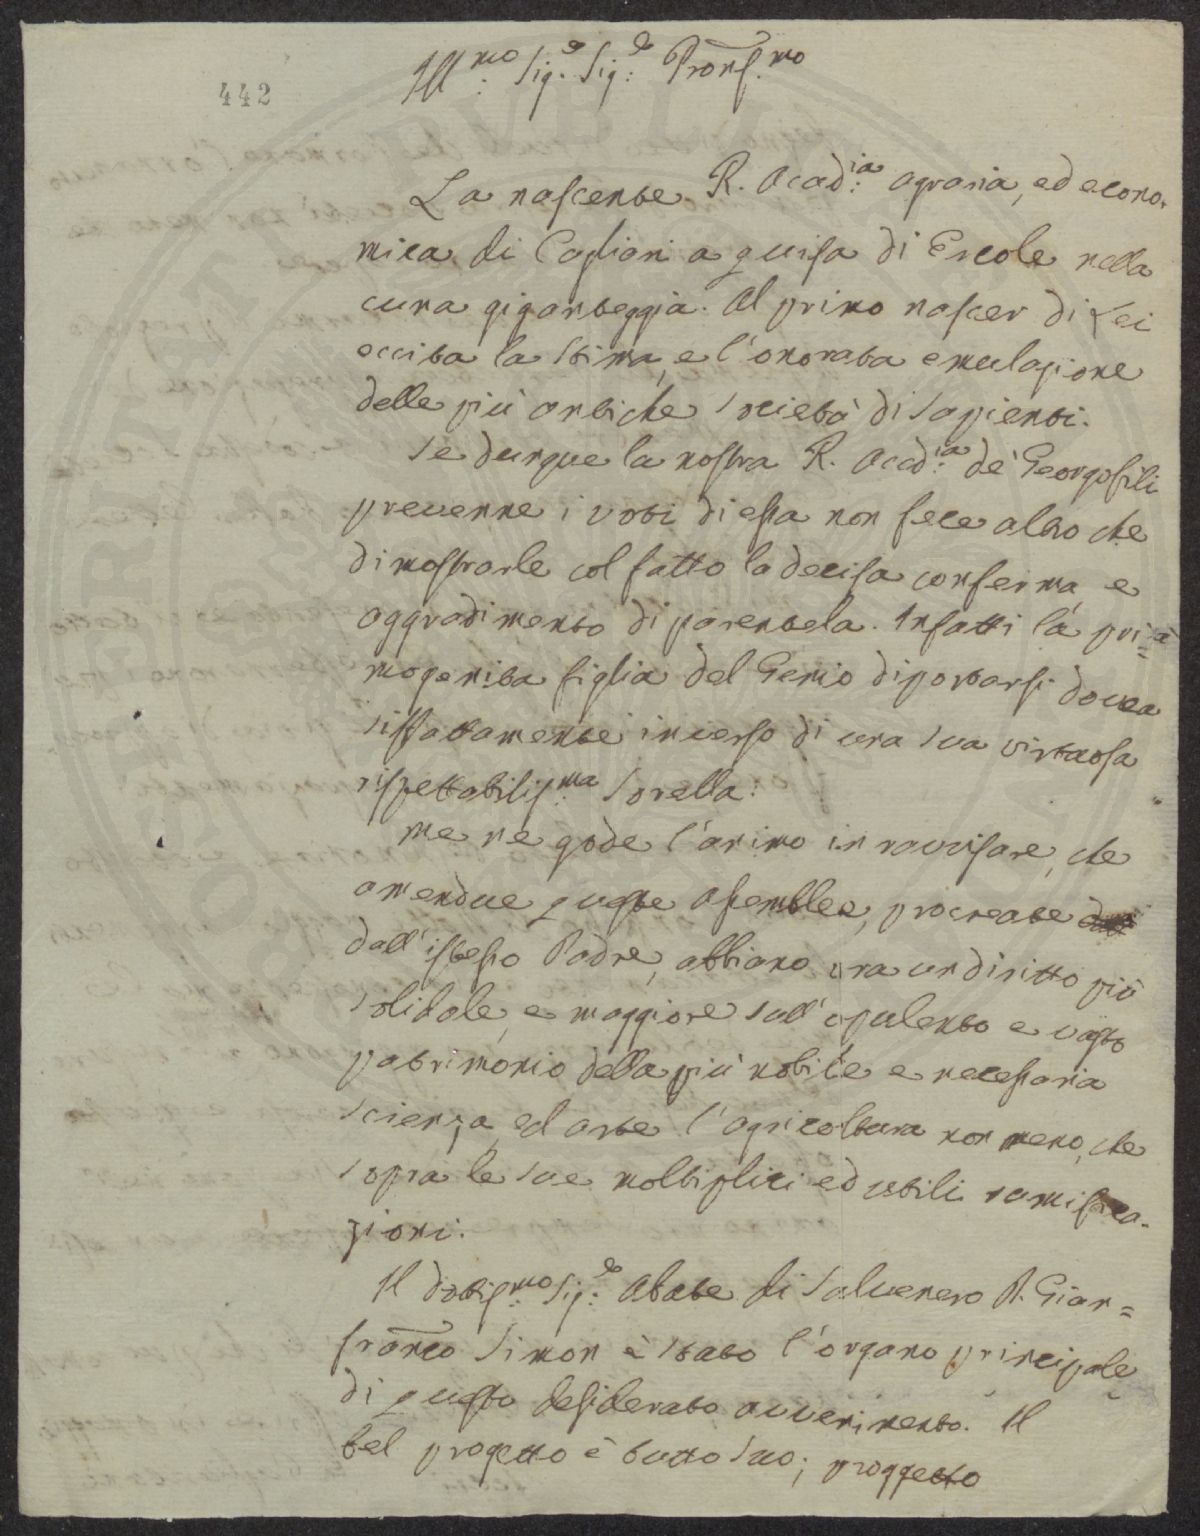 442
Ill.mo Sig.e Sig.e Pron.mo
La nascente R. Acad.ia agraria, ed econo-
mica di Cagliari a guisa di Ercole nella
cuna giganteggia. Al primo nascer di Lei
eccita la stima, e l'onorata emulazione
delle più antiche società di sapienti.
Se dunque la nostra R. Accd.ia de' Georgofili
prevenne i voti di essa non fece altro che
dimostrarle col fatto la decisa conferma e
aggradimento di parentela. Infatti la pri=
mogenita figlia del Genio diportarsi dovea
siffattamente inverso di una sua virtuosa
rispettabilis.ma sorella.
Me ne gode l'animo in ravvisare, che
amendue queste assemblee, procreate
dall'istesso Padre, abbiano ora un diritto più
solidale, e maggiore sull'opulento e vasto
patrimonio della più nobile e necessaria
scienza, ed arte l'agricoltura non meno, che
sopra le sue moltiplici ed utili ramifica-
zioni.
Il dottis.mo Sig.e Abate di Salvenero D. Gian=
franco Simon è stato l'organo principale
di questo desiderato avvenimento. Il
bel progetto è tutto suo; proggetto